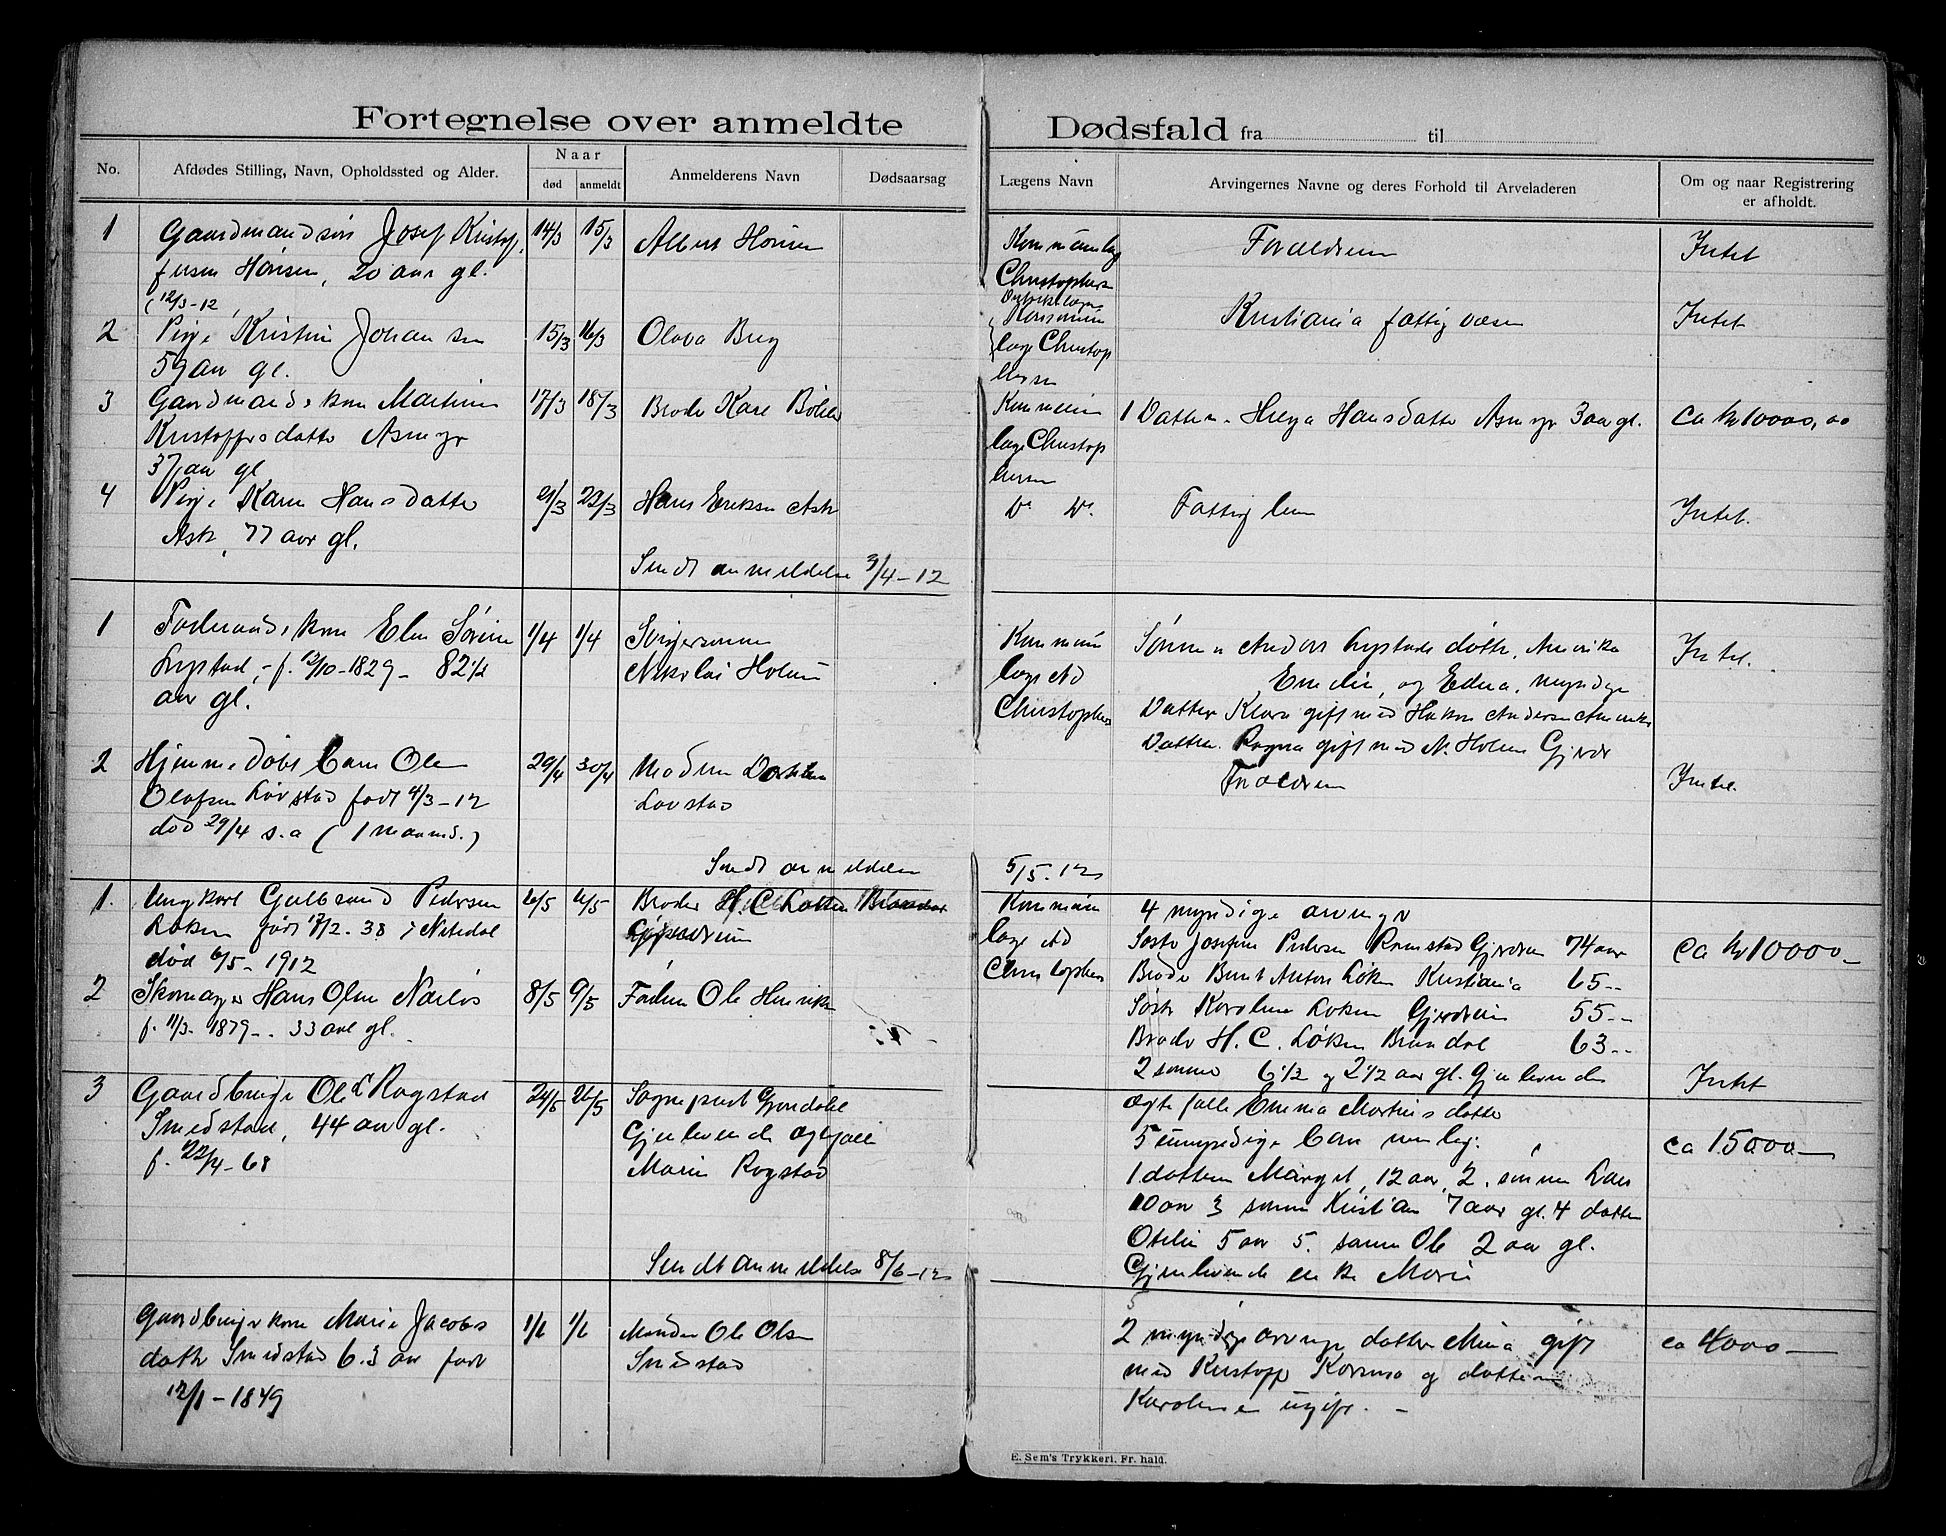 Fortegnelse over anmeldte
No.
Afdødes Stilling, Navn, Opholdssted og Alder.
Naar
død
anmeldt
Anmelderens Navn
Dødsaarsag
1
Gaardmandsøn Josef Kristof
Hansen, 20 aar gl.
14/3
15/3
Albert
(12/3-12
2
Pige Kristine Johansen
59 aar gl.
15/3
16/3
Olava Berg
3
Gaardmandskone Martine
Kristoffersdatter Asmyr
37 aar gl.
17/3
18/3
Broder Karl Bøler
4
Pige Karen Hansdatter
Ask, 77 aar gl.
21/3
22/3
Hans Eriksen Ask
Sendt anmeldelse 3/4-12
1
Føderaadskone Elen Sørine
Lystad, f. 12/10-1829 - 82 1/2
aar gl.
1/4
1/4
Svigersønnen
Nikolai Holum
2
Hjemmedøbt barn Ole
Olafsen Løvstad født 4/3-12
død 29/4 s.a (1 maaned.)
29/4
30/4
Moderen
Løvstad
Sendt anmeldelse
1.
Ungkarl Gulbrand Pedersen
Løken født 17/2-38 i Nitedal
død 6/5-1912
6/5
6/5
Broder H. C. Løken
2
Skomager Hans Olsen
f. 11/3-1879 - 33 aar gl.
8/5
9/5
Faderen Ole Henriks
3
Gaardbruger Ole L Rogstad
Smedstad, 44 aar gl.
f. 22/4-68
24/5
26/5
Sogneprest Gjerdahl
Gjenlevende
Marie Rogstad
Sendt anmeldelse 8/6-12
Gaardbrugerkone Marie Jacobs
datter Smedstad 63 aar født
12/1-1849
1/6
1/6
Manden Ole Olsen
Smedstad
Dødsfald fra til
Lægens Navn
Arvingernes Navne og deres Forhold til Arveladeren
Om og naar Registrering
er afholdt.
Kommunelæge
Christophers
Forældrene
Intet
Kommune
læge Christop
hersen
Kristiania fattigvæsen
Intet
Kommune
læge Christop
hersen
1 Datter - Helga Hansdatter Asmyr 3 aar gl.
ca kr 10000,00
Do Do.
Fattiglem
Intet.
Kommune
læge Ad
Christophers
Sønnen Anders Lystads døtre, Amerika
Emelie, og Edna, myndige
Datter Klara gift med Hakon Andersen Amerika
Datter Ragna gift med N. Holum Gjerdr
Intet.
Forældrene
Intet.
5/5.12
Kommune
læge Ad
Christophers
4 myndige arvinger
Søster Josefine Pedersen Ramstad Gjerdrum 74 aar
Broder Bernt Anton Løken Kristiania 65 --
Søster Karoline Løken Gjerdrum 55 --
Broder H. C. Løken 63 --
ca kr 10000-
2 sønner 6 1/2 og 2 1/2 aar gl. Gjenlevende
Intet
ægtefælle Emma Martinsdatter
5 umyndige barn nemlig:
1 datteren Margit, 12 aar, 2. sønnen Lars
10 aar 3 sønnen Kristian 7 aar gl. 4 datter
Otilie 5 aar 5. sønnen Ole 2 aar gl.
Gjenlevende enke Marie
ca 15000-
2 myndige arvinger datter Mina gift
med Kristoffer Korsmo og datteren
Karolene ugift. -
ca 4000-
E. Sem's Trykkeri. Fr. hald.